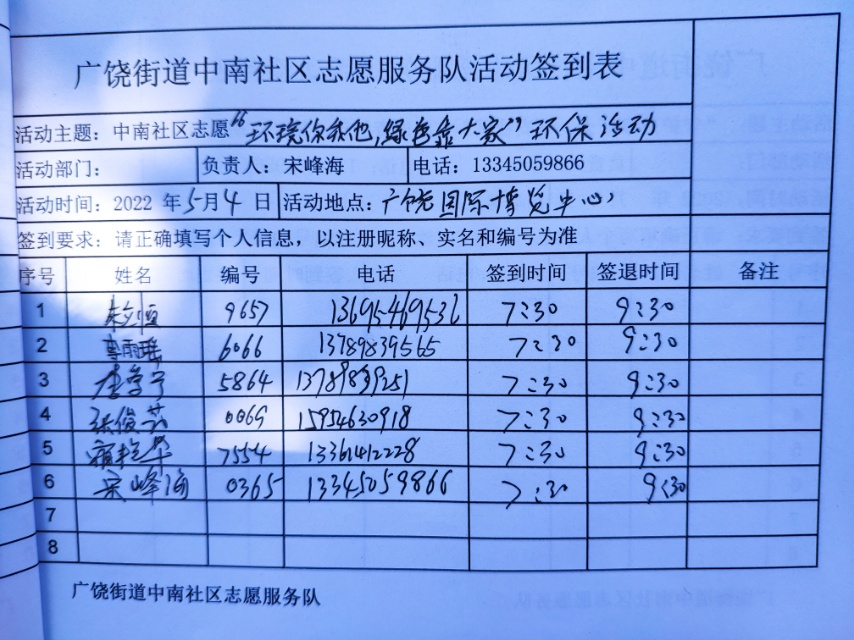 广饶街道中南社区志愿服务队活动签到表
活动主题：中南社区志愿“环境你我他,绿色靠大家”环保活动
活动部门： 负责人：宋峰海 电话：13345059866
活动时间：2022 年 5月 4 日 活动地点：广饶国际博览中心
签到要求：请正确填写个人信息，以注册昵称、实名和编号为准
序号 姓名 编号 电话 签到时间 签退时间 备注
1 9657 13695469536 7:30 9:30
2 李雨瑶 6066 13789839565 7:30 9:30
3 5864 13789839251 7:30 9:30
4 0069 15954630918 7:30 9:30
5 7554 13361412228 7:30 9:30
6 宋峰海 0365 13345059866 7:30 9:30
7
8
广饶街道中南社区志愿服务队